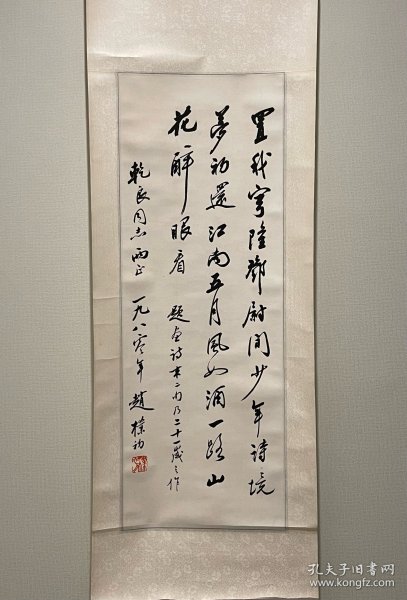 置我穹隆鄧尉间少年诗境
夢初還江南五月風如酒一路山
花醉眼看 题画诗末二句乃二十一歲之作
乾良同志两正 一九八零年 趙樸初
孔夫子旧书网
www.kongfz.com